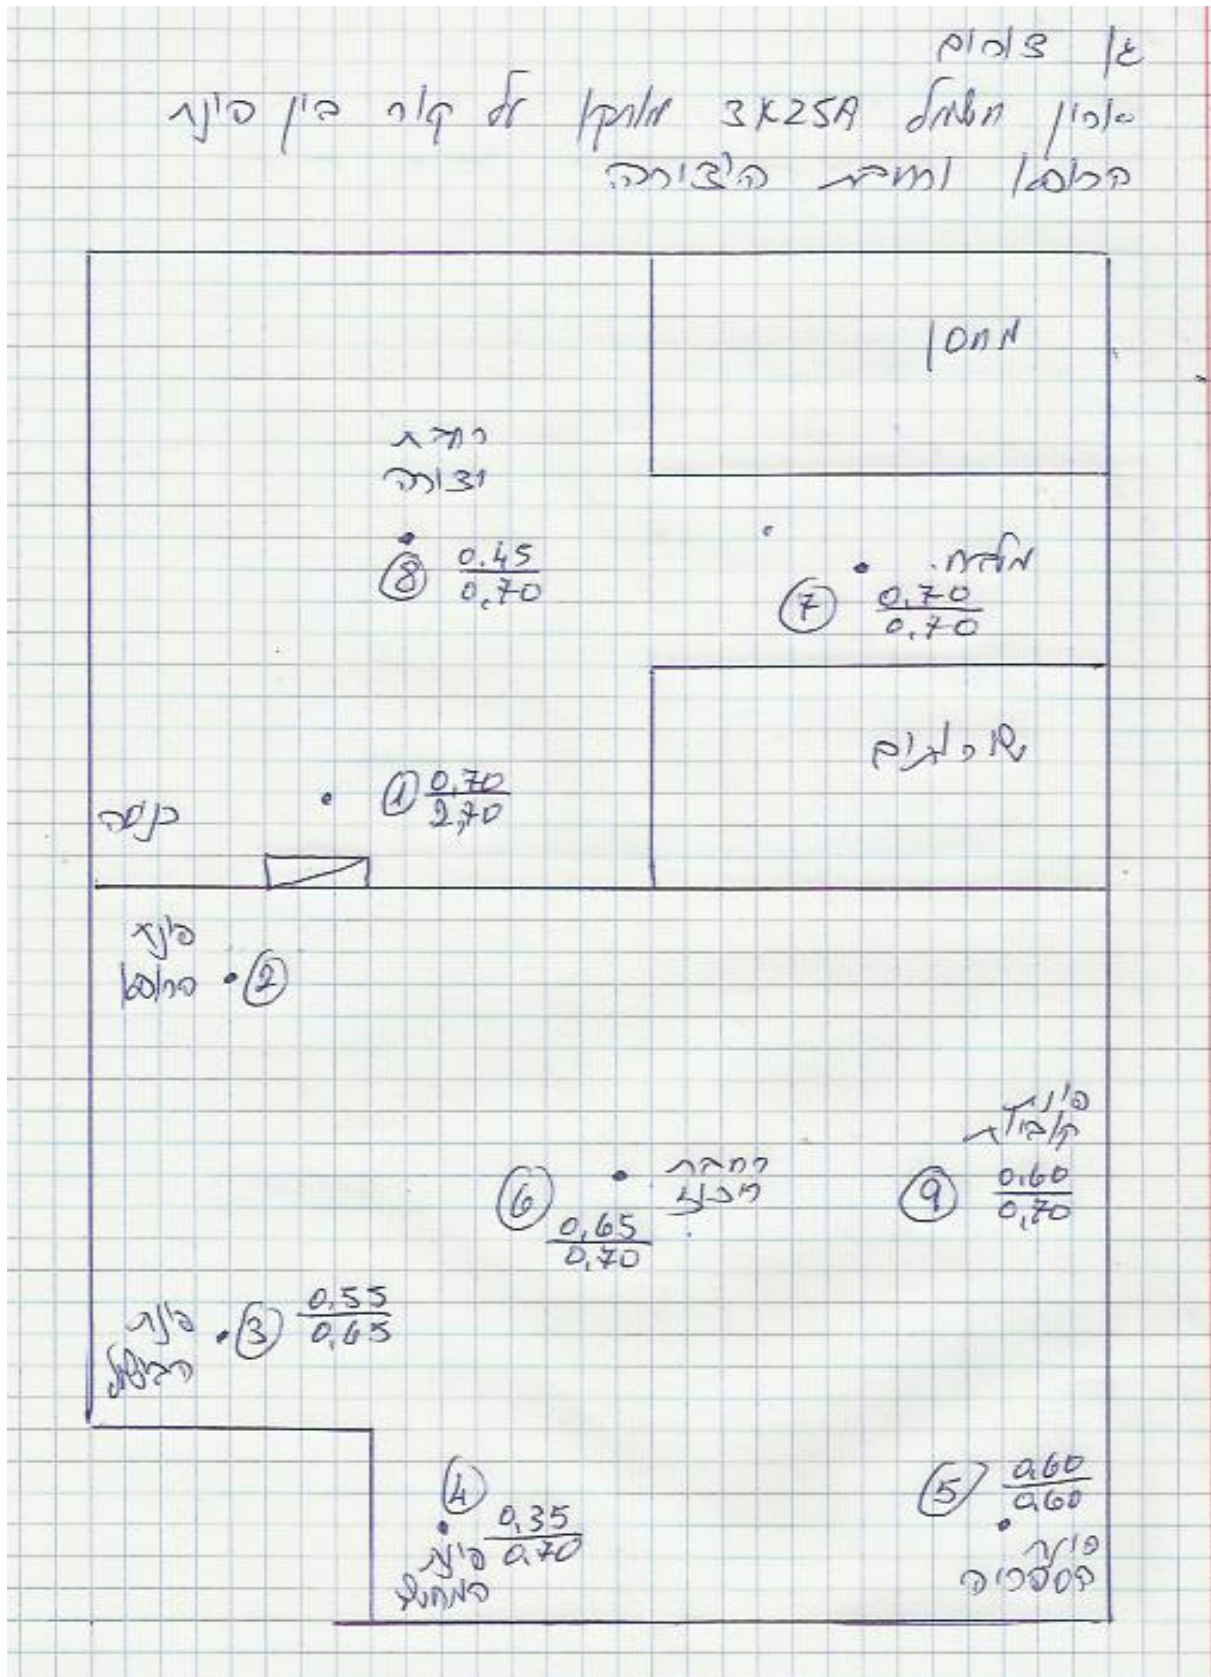 גן צורים
ארון חשמל 3X25A מותקן על קיר בין פינת
הרופא ורחבת היצירה
מחסן
רחבת
יצירה
⑧ 0.45
0.70
מטבח
⑦ 0.70
0.70
שירותים
① 0.70
2.70
כניסה
פינת
הרופא ②
פינת
קוביות
⑨ 0.60
0.70
רחבת
מפגש
⑥ 0.65
0.70
פינת
הבישול
③ 0.55
0.65
④ 0.35
0.70
פינת
המחשב
⑤ 0.60
0.60
פינת
הספריה